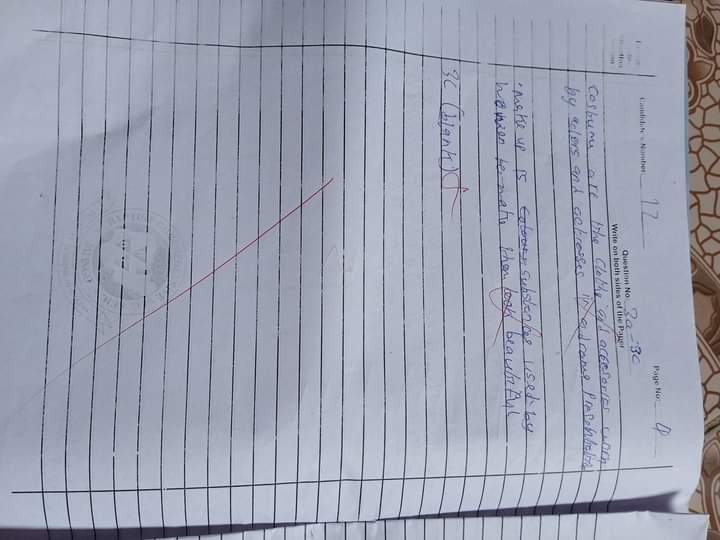 Candidate's Number 17
Question No. 3a-3c
Page No: 4
Write on both sides of the Paper
Costume are the cloths and accesories worn
by actors and actresses in a drama presentation
• make up is colour substances used by
women to make them look beautiful
3C (blank)